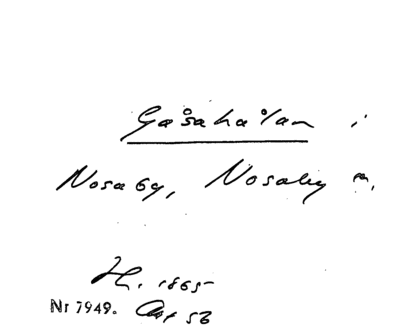 Gåsahålan i
Nosaby, Nosaby sn,
H. 1865
Nr 7949. Akt 56